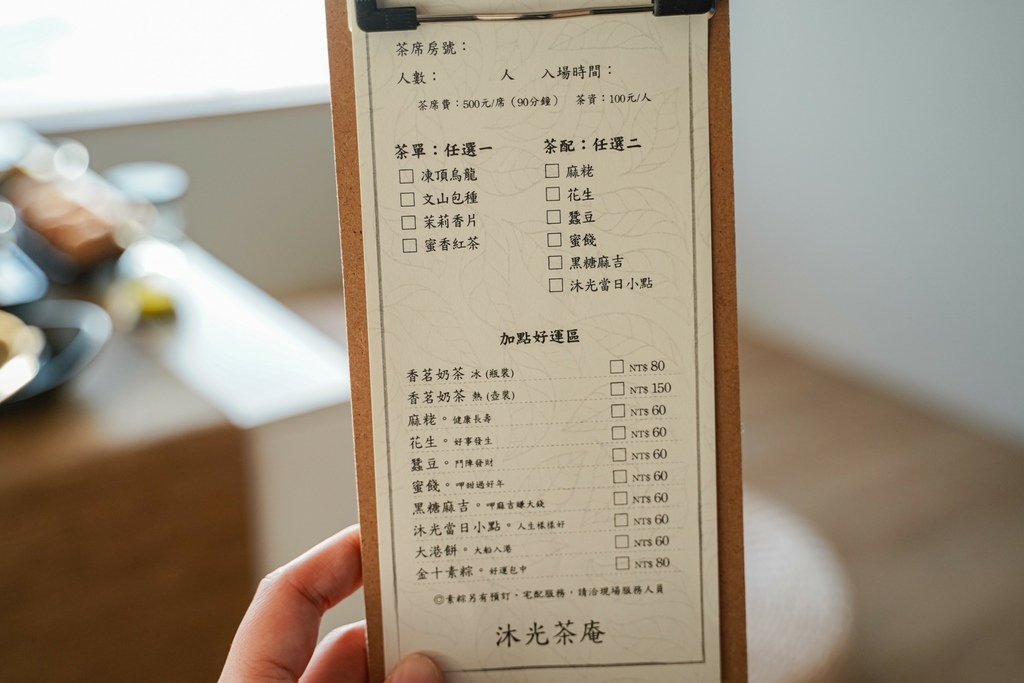 茶席房號：
人數：　　　人　入場時間：
茶席費：500元/席（90分鐘）　茶資：100元/人
茶單：任選一
□ 凍頂烏龍
□ 文山包種
□ 茉莉香片
□ 蜜香紅茶
茶配：任選二
□ 麻粩
□ 花生
□ 蠶豆
□ 蜜餞
□ 黑糖麻吉
□ 沐光當日小點
加點好運區
香茗奶茶 冰 (瓶裝) □ NT$ 80
香茗奶茶 熱 (壺裝) □ NT$ 150
麻粩。健康長壽 □ NT$ 60
花生。好事發生 □ NT$ 60
蠶豆。鬥陣發財 □ NT$ 60
蜜餞。呷甜過好年 □ NT$ 60
黑糖麻吉。呷麻吉賺大錢 □ NT$ 60
沐光當日小點。人生樣樣好 □ NT$ 60
大港餅。大船入港 □ NT$ 60
金十素粽。好運包中 □ NT$ 80
◎素粽另有預訂、宅配服務，請洽現場服務人員
沐光茶庵